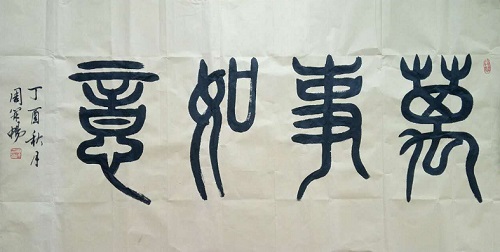 萬事如意
丁酉秋月